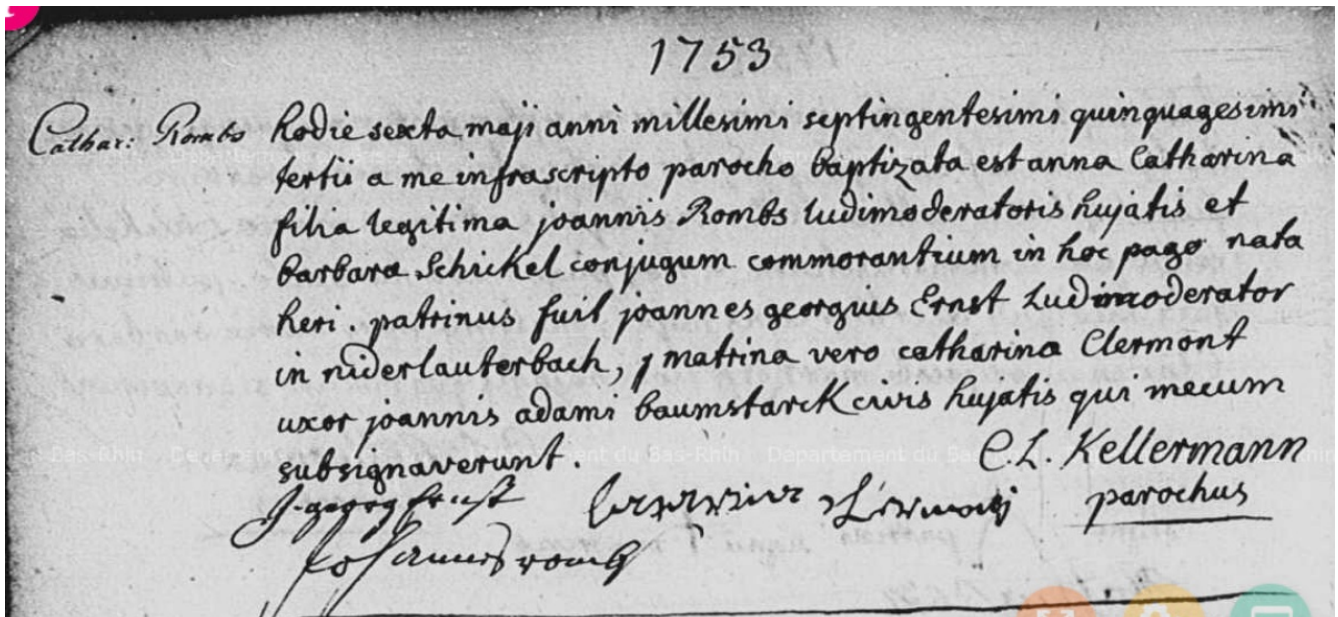 1753
Cathar: Rombs hodie sexta maji anni millesimi septingentesimi quinquagesimi
tertii a me infrascripto parocho baptizata est anna Catharina
filia legitima joannis Rombs ludimoderatoris hujatis et
barbara Schickel conjugum commorantium in hoc pago nata
heri. patrinus fuit joannes georgius Ernst Ludimoderator
in niderlauterbach, matrina vero catharina Clermont
uxor joannis adami baumstarck civis hujatis qui mecum
subsignaverunt. C.L. Kellermann
parochus
Ernst
Johannes romb
Bas-Rhin Département du Bas-Rhin Département du Bas-Rhin